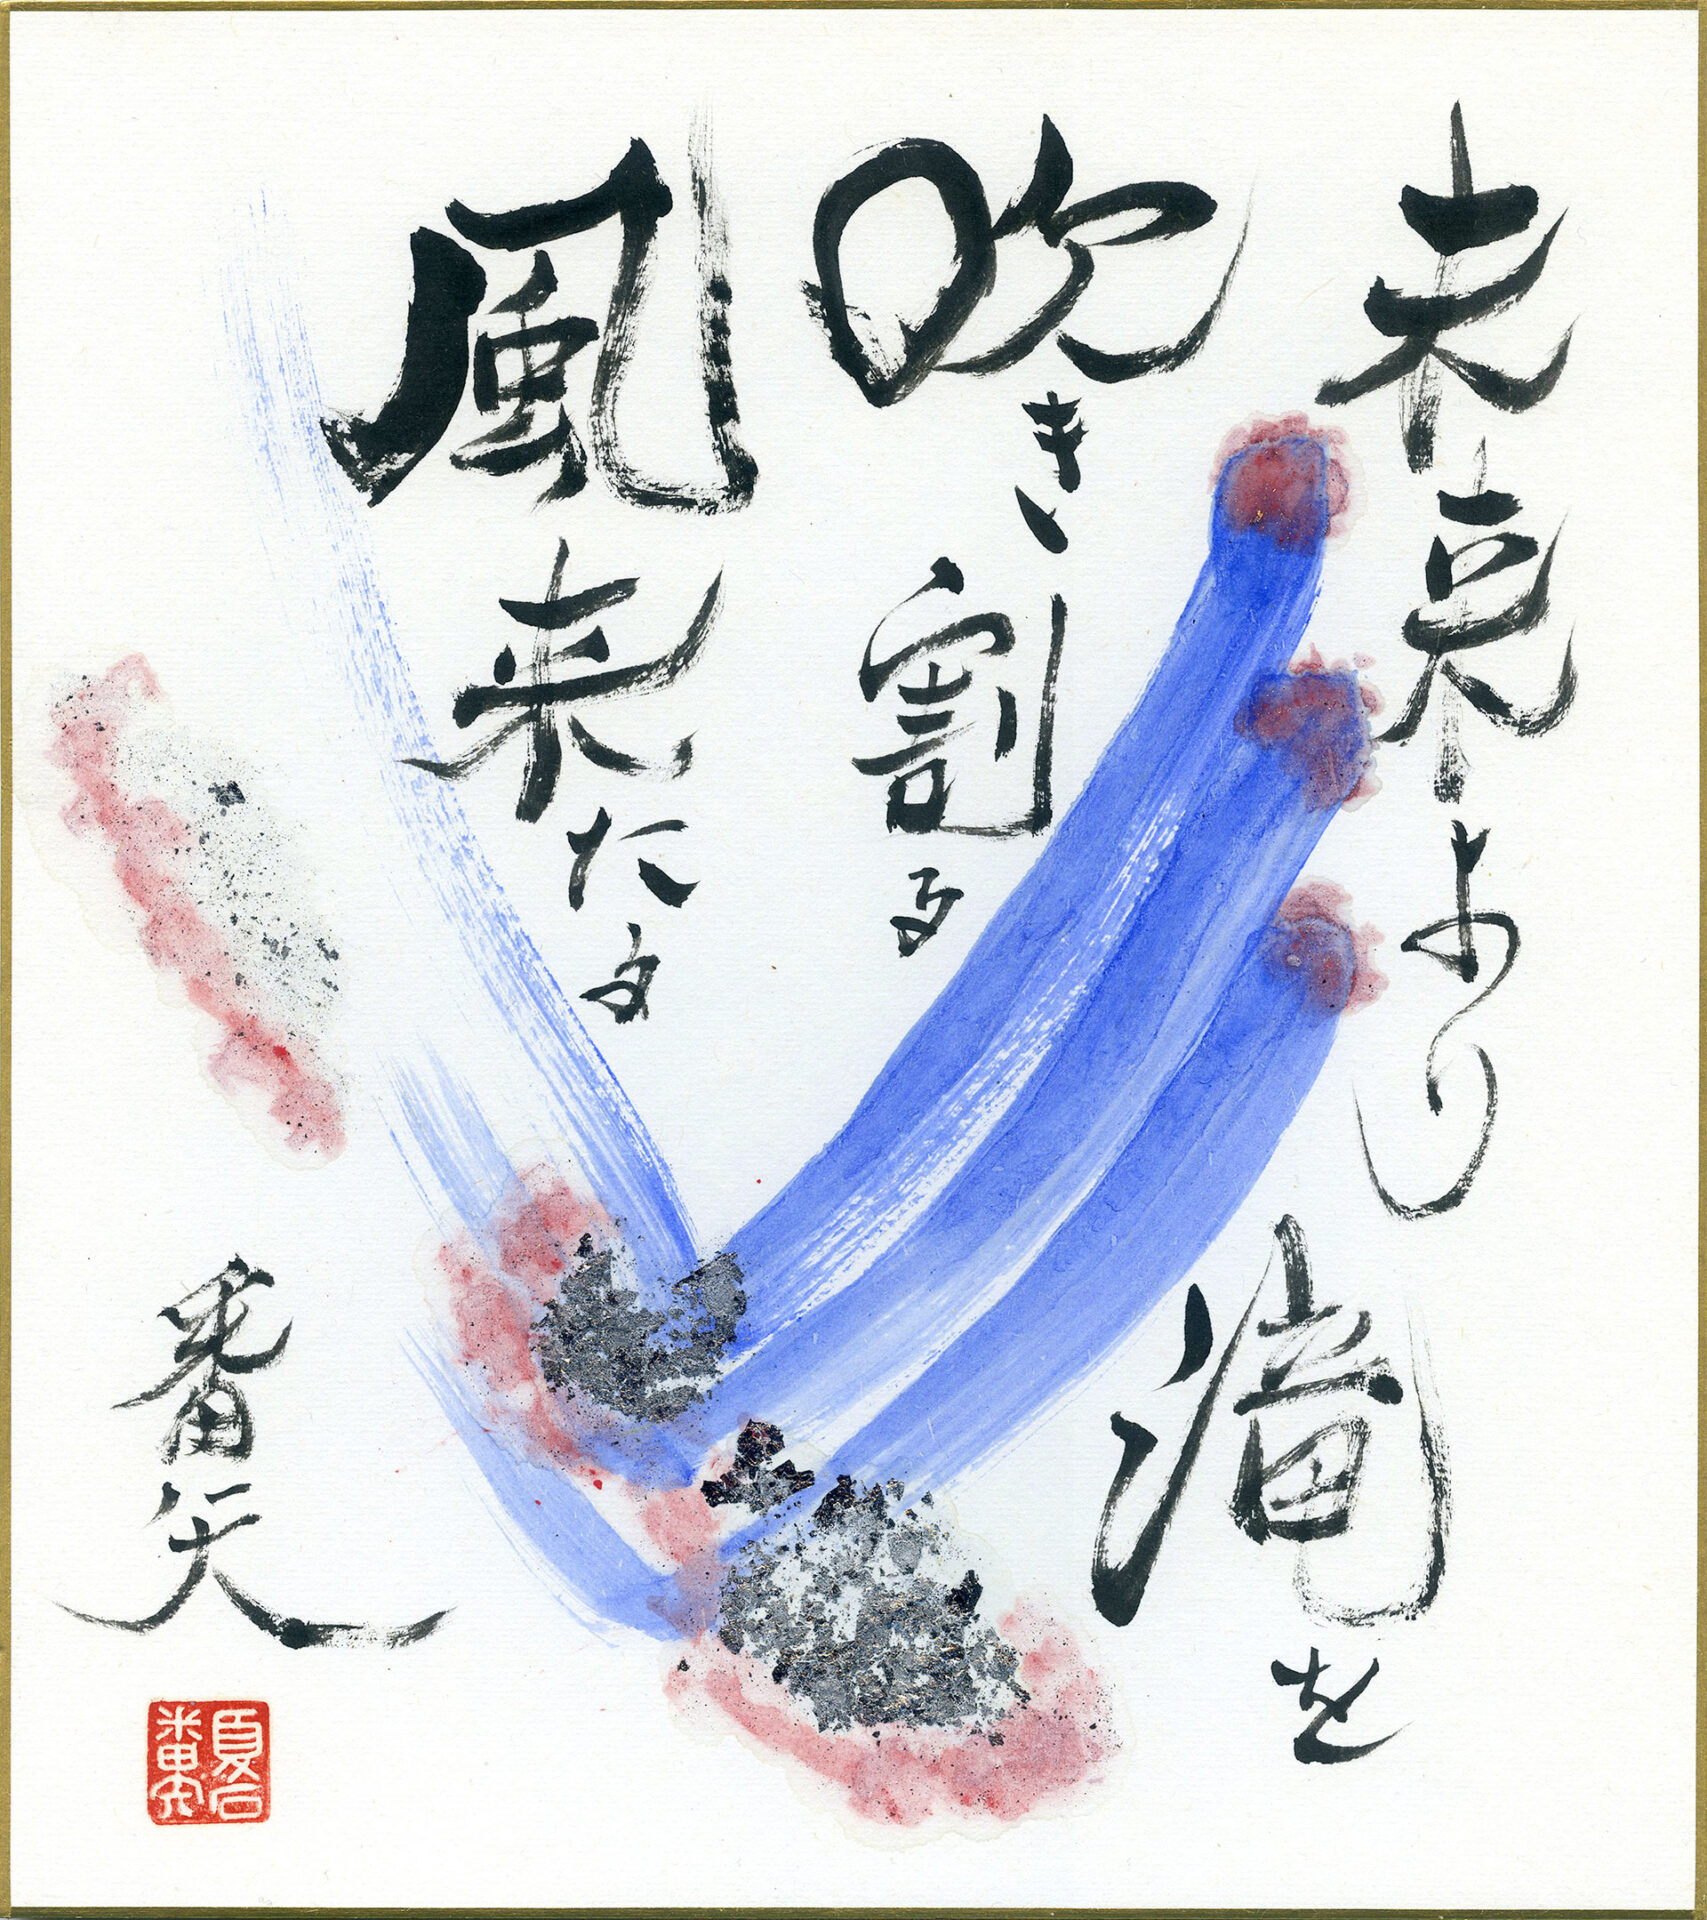 未来より滝を
吹き割る
風来たる
番矢
夏石
番矢